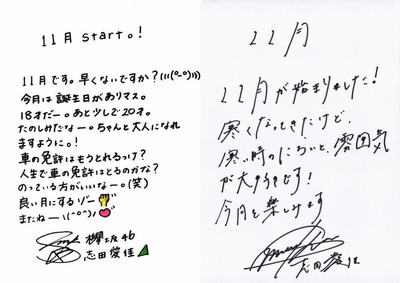 11月 start。!
11月です。早くないですか?(((º-º)))
今月は誕生日がありマス。
18才だー。あと少しで20才。
たのしみだなー。ちゃんと大人になれ
ますように。!
車の免許はもうとれるっけ?
人生で車の免許はとるのかな?
のっている方がいいなー。(笑)
良い月にするゾー
またねー\(^o^)/
欅坂46
志田愛佳
11月
11月が始まりました!
寒くなってきたけど、
寒い時のにおいと、雰囲気
が大好きです!
今月を楽しみます
志田愛佳